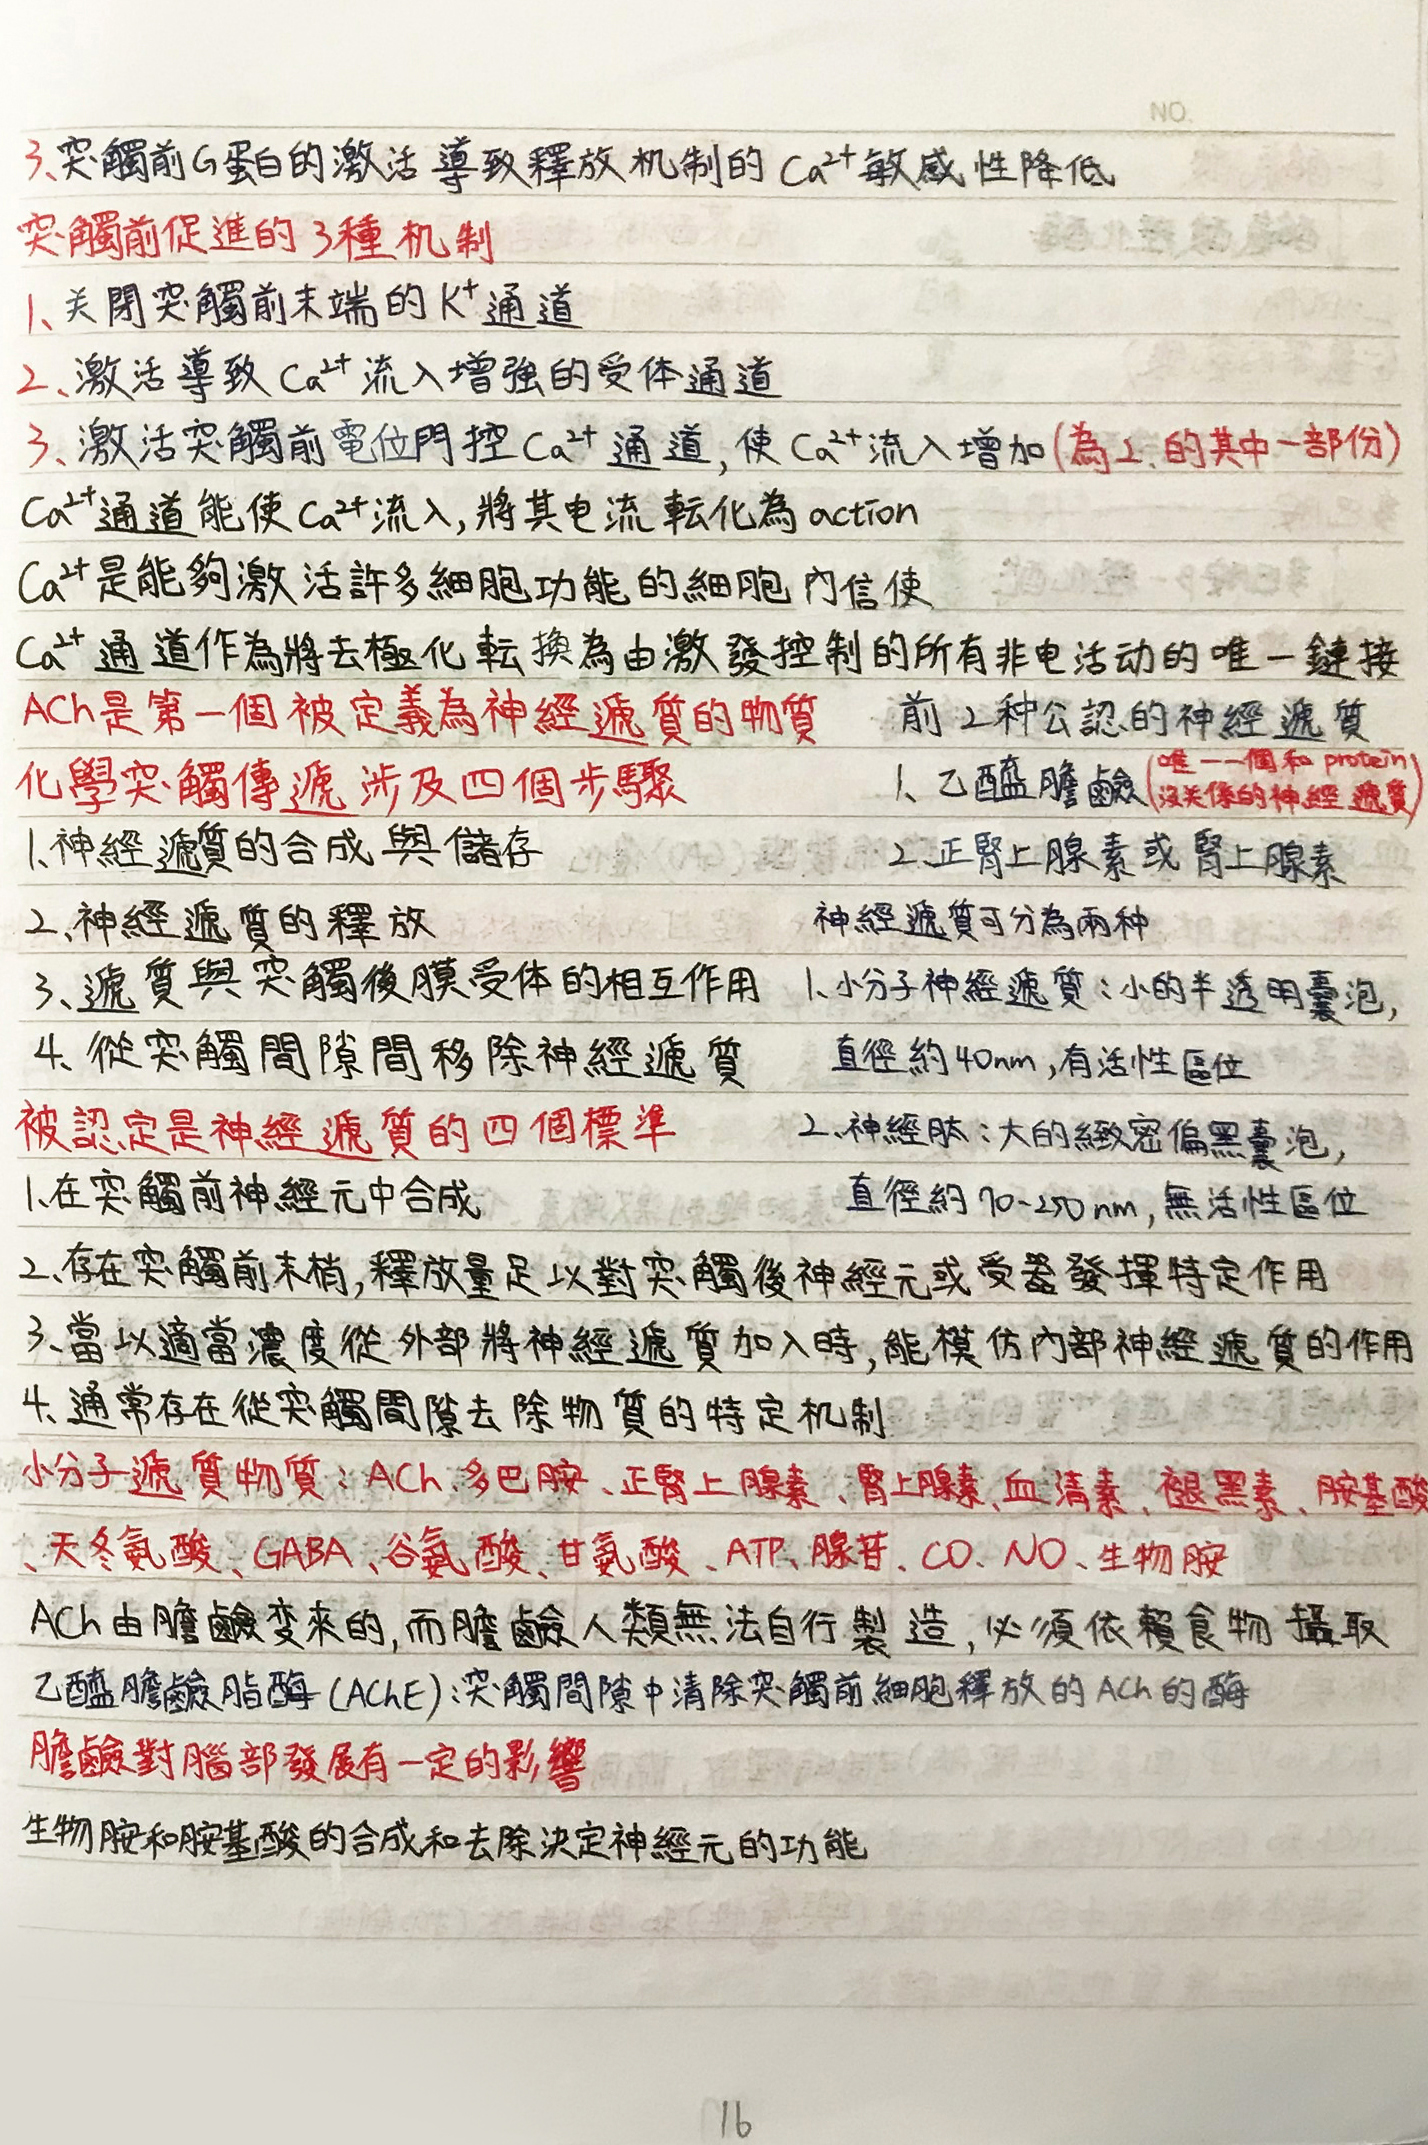 NO.
3、突觸前G蛋白的激活導致釋放机制的Ca²⁺敏感性降低
突觸前促進的3種机制
1、关閉突觸前末端的K⁺通道
2、激活導致Ca²⁺流入增強的受体通道
3、激活突觸前電位門控Ca²⁺通道,使Ca²⁺流入增加(為2.的其中一部份)
Ca²⁺通道能使Ca²⁺流入,將其电流転化為action
Ca²⁺是能夠激活許多細胞功能的細胞內信使
Ca²⁺通道作為將去極化転換為由激發控制的所有非电活动的唯一鏈接
ACh是第一個被定義為神經遞質的物質
化學突觸傳遞涉及四個步驟
1、神經遞質的合成與儲存
2、神經遞質的釋放
3、遞質與突觸後膜受体的相互作用
4、從突觸間隙間移除神經遞質
被認定是神經遞質的四個標準
1、在突觸前神經元中合成
前2种公認的神經遞質
1、乙醯膽鹼(唯一一個和protein
沒关係的神經遞質)
2、正腎上腺素或腎上腺素
神經遞質可分為兩种
1、小分子神經遞質:小的半透明囊泡,
直徑約40nm,有活性區位
2、神經肽:大的緻密偏黑囊泡,
直徑約70-250nm,無活性區位
2、存在突觸前末梢,釋放量足以對突觸後神經元或受器發揮特定作用
3、當以適當濃度從外部將神經遞質加入時,能模仿內部神經遞質的作用
4、通常存在從突觸間隙去除物質的特定机制
小分子遞質物質:ACh、多巴胺、正腎上腺素、腎上腺素、血清素、褪黑素、胺基酸
、天冬氨酸、GABA、谷氨酸、甘氨酸、ATP、腺苷、CO、NO、生物胺
ACh由膽鹼变來的,而膽鹼人類無法自行製造,必須依賴食物攝取
乙醯膽鹼脂酶(AChE):突觸間隙中清除突觸前細胞釋放的ACh的酶
膽鹼對腦部發展有一定的影響
生物胺和胺基酸的合成和去除決定神經元的功能
16